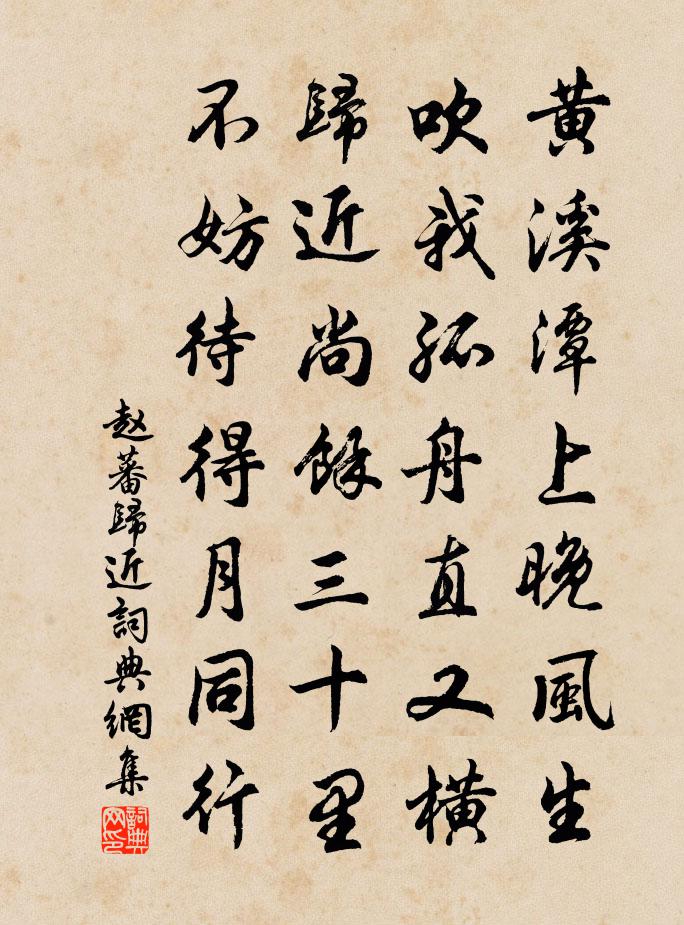 黄溪潭上晚風生
吹我孤舟直又横
歸近尚餘三十里
不妨待得月同行
赵蕃歸近詞典網集
詞典
网印